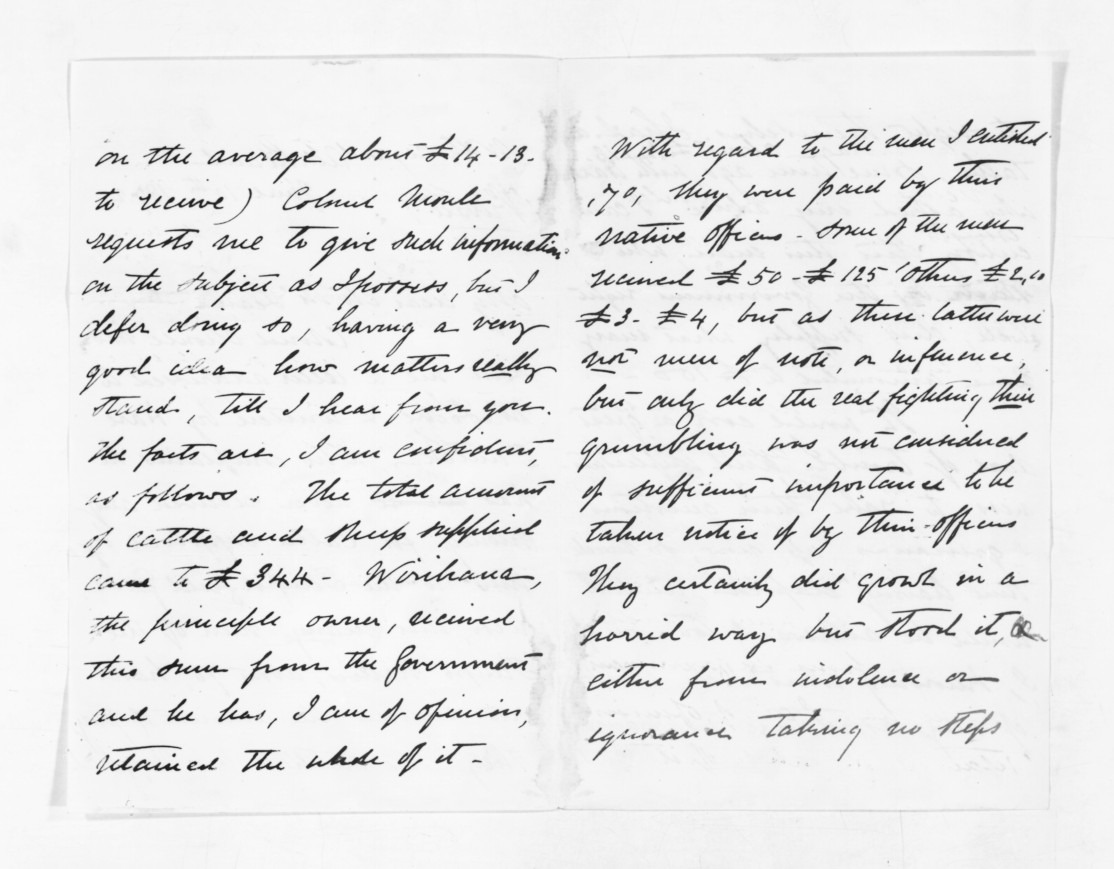 on the average about £14-13-
to receive) Colonel Moule
requests me to give such information
on the subject as I possess, but I
defer doing so, having a very
good idea how matters really
stand, till I hear from you.
The facts are, I am confident,
as follows. The total amount
of cattle and sheep supplied
came to £344- Wirihana,
the principle owner, received
this sum from the Government
and he has, I am of opinion,
retained the whole of it -
With regard to the men I enlisted
,70, they were paid by their
native officers - some of the men
received £50 - £125 others £2,10
£3 - £4, but as these latter were
not men of note, or influence,
but only did the real fighting their
grumbling was not considered
of sufficient importance to be
taken notice of by their officers
They certainly did growl in a
horrid way but stood it,
either from indolence or
ignorance taking no steps